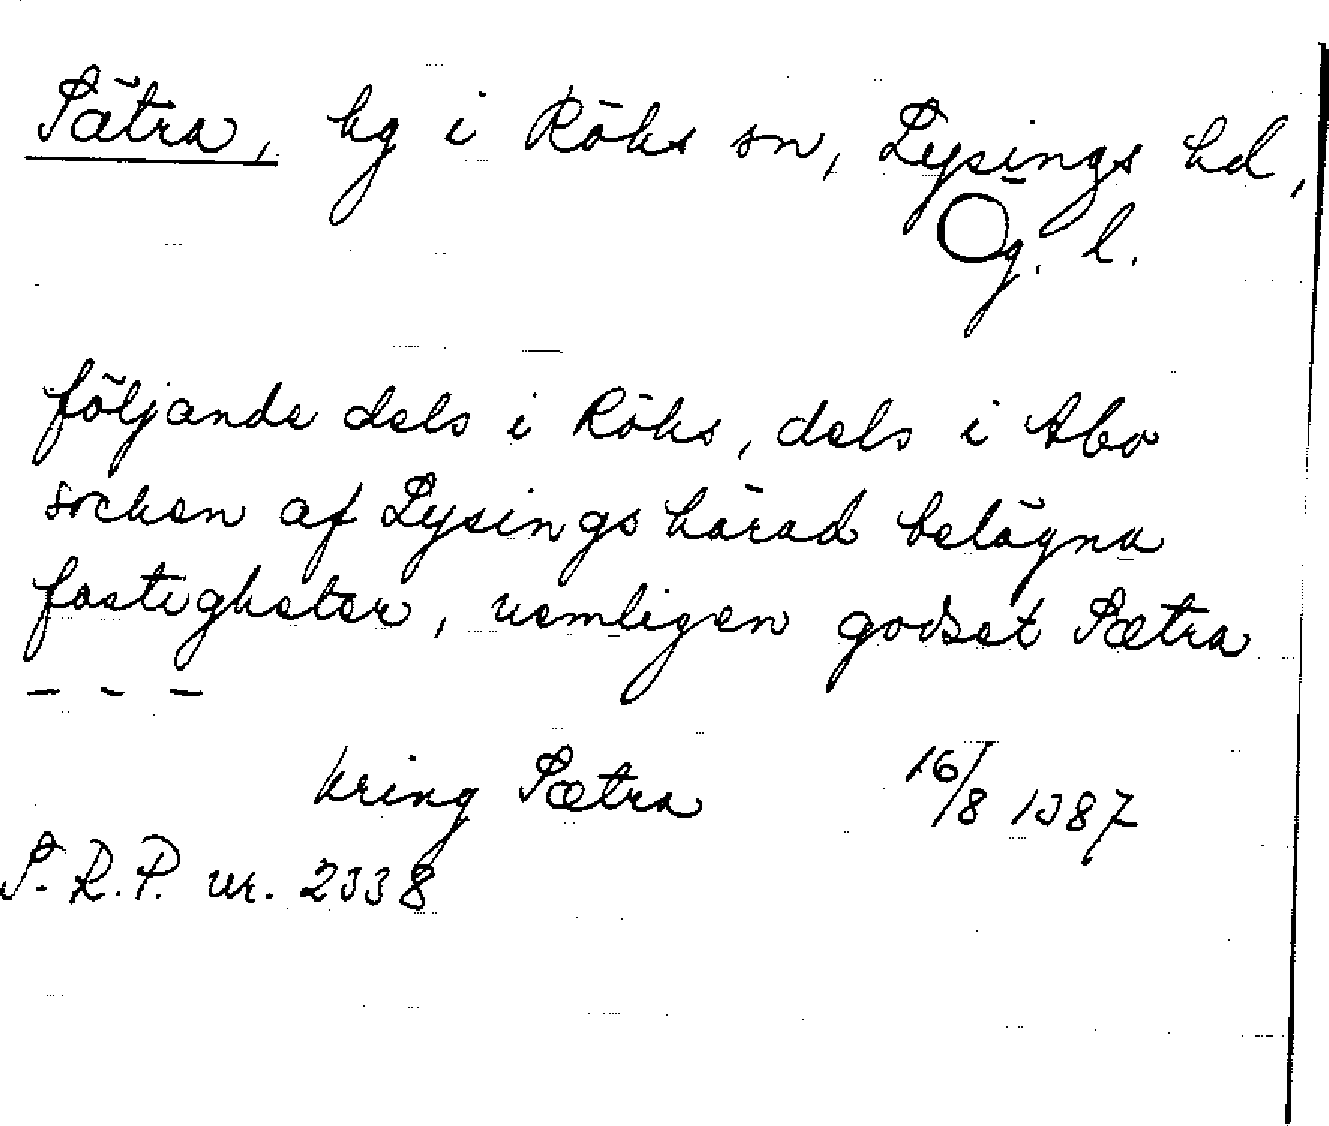 Sätra, hg i Röks sn, Lysings hd,
Ög. l.
följande dels i Röks, dels i Abo
socken af Lysings härad belägna
fastigheter, nemligen godset Sætra
– – –
kring Sætra 16/8 1387
S. R. P. nr. 2338